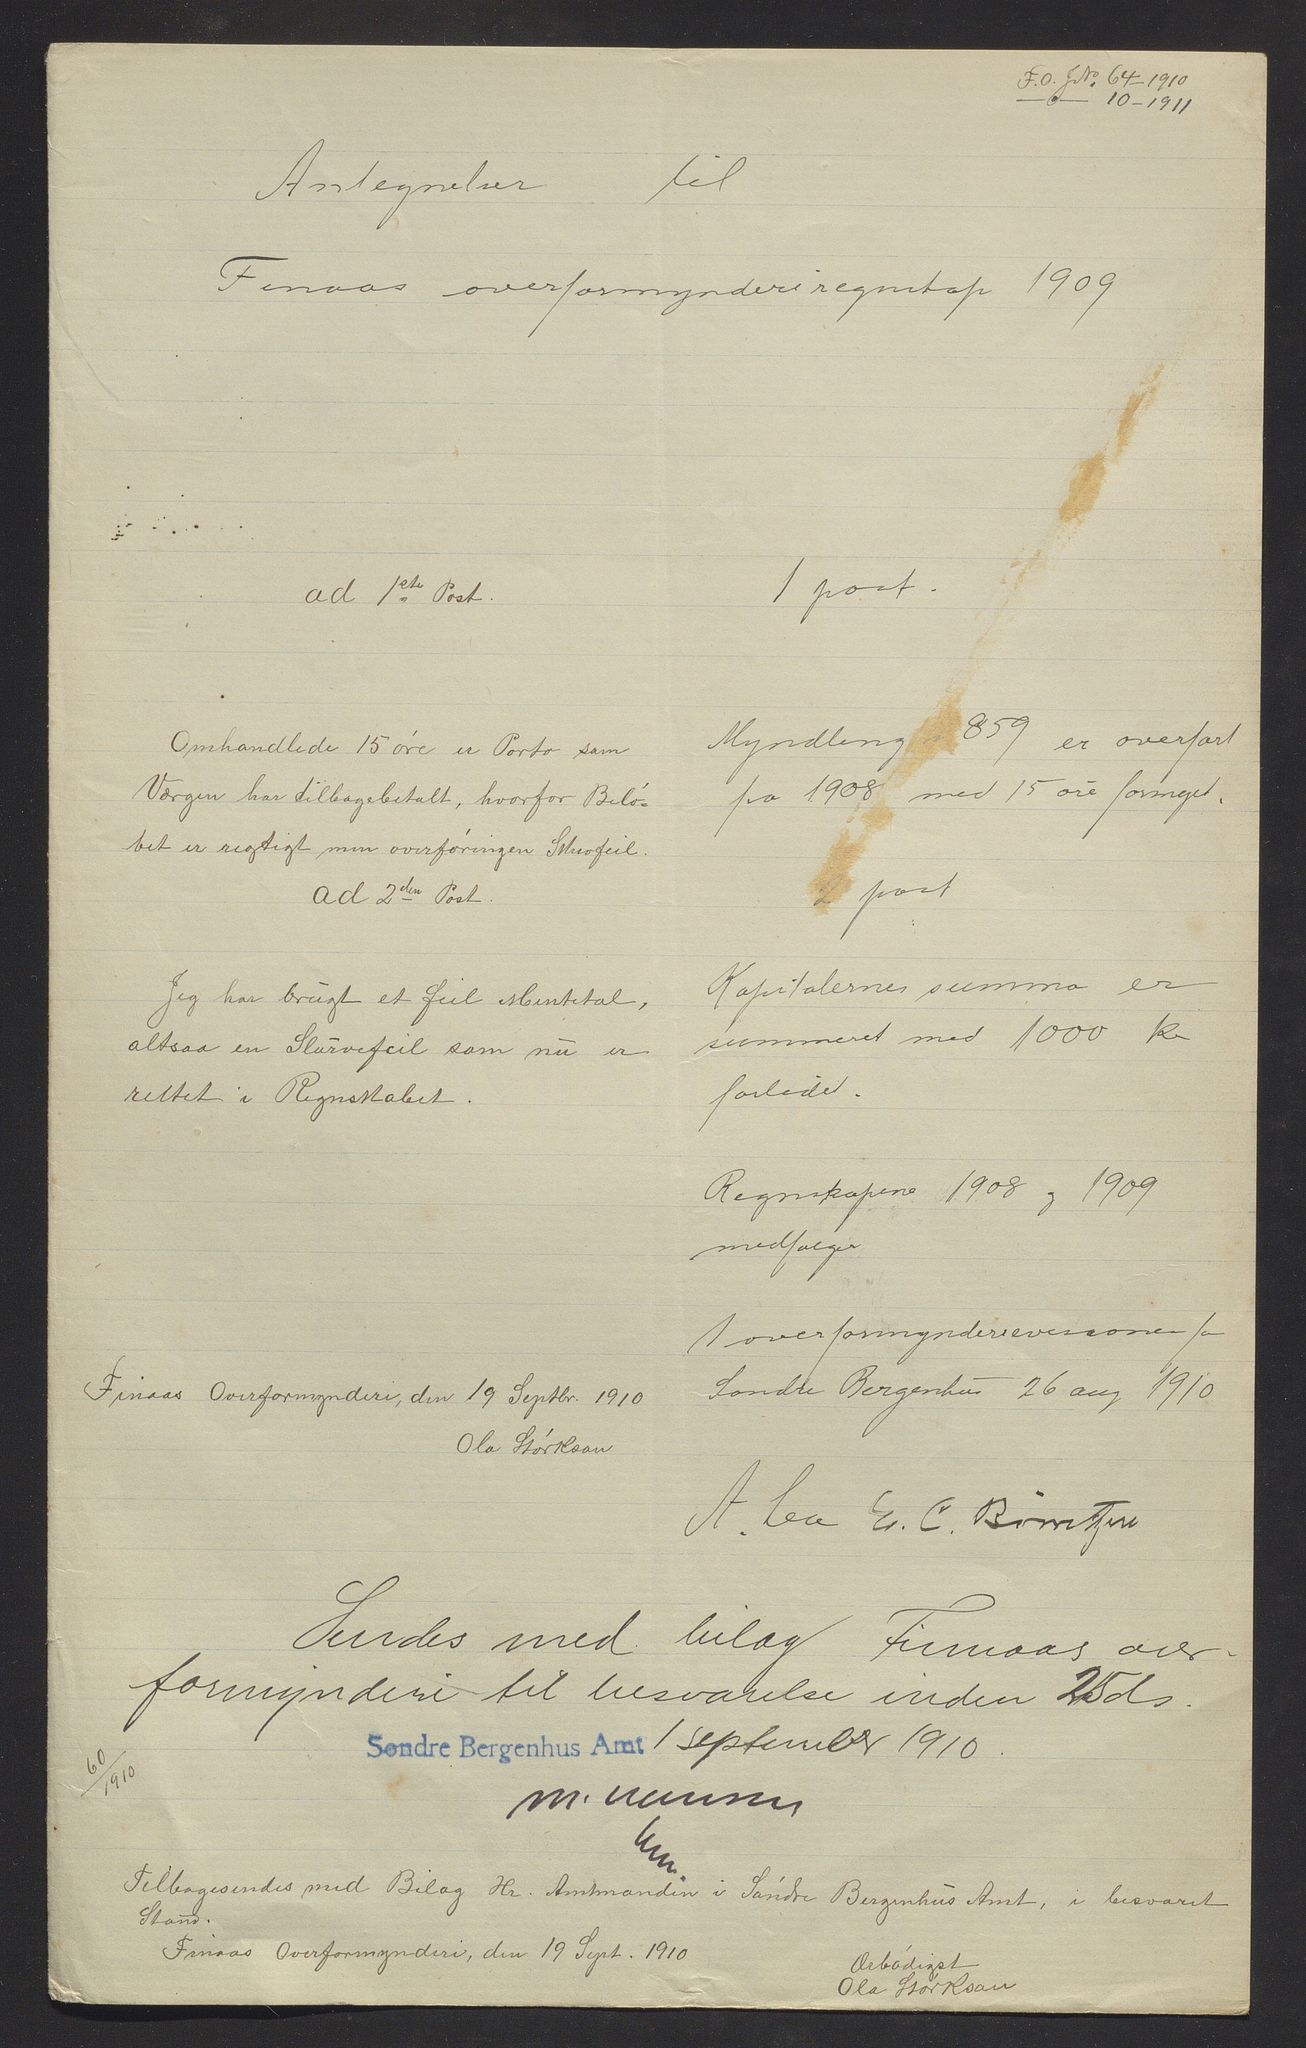 F.O. J.No. 64-1910
10-1911
Antegnelser til
Finaas overformynderiregnskap 1909
ad 1ste Post.
Omhandlede 15 öre er Porto som
Værgen har tilbagebetalt, hvorfor Belö-
bet er rigtigt men overföringen Skrivfeil.
ad 2den Post.
Jeg har brugt et feil Mentetal,
altsaa en Slurvefeil som nu er
rettet i Regnskabet.
Finaas Overformynderi, den 19 Septbr. 1910
Ola Störkson
1 post.
Myndling 859 er overført
fra 1908 med 15 øre formeget.
2 post
Kapitalernes summa er
summeret med 1000 kr
forlidet.
Regnskapene 1908 og 1909
medfølger
I overformynderirevisionen for
Søndre Bergenhus 26 aug 1910
A. Lea E. C.
Sendes med bilag Finnaas over-
formynderi til besvarelse inden 25 ds.
Søndre Bergenhus Amt 1 september 1910.
60/1910
Tilbagesendes med Bilag Hr. Amtmanden i Söndre Bergenhus Amt, i besvaret
Stand.
Finaas Overformynderi, den 19 Sept. 1910
Ærbödigst
Ola Störkson